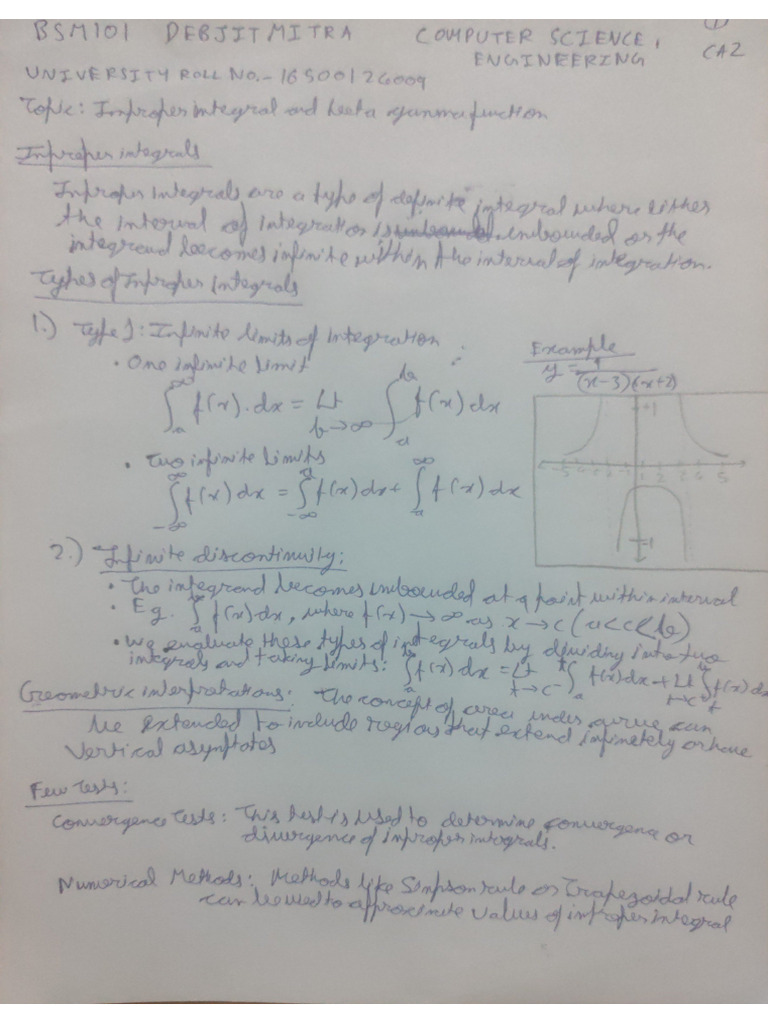 ①
BSM101 DEBJIT MITRA COMPUTER SCIENCE, ENGINEERING CA2
UNIVERSITY ROLL NO.- 16500126009
Topic: Improper integral and beeta gamma function
Inproper integrals
Inproper Integrals are a type of definite integral where either
the interval of integration is unbounded or the
integrand becomes infinite within the interval of integration.
Types of Improper Integrals
1.) Type 1: Infinite limits of Integration
• One infinite limit
∫_a^∞ f(x).dx = Lt_{b→∞} ∫_a^b f(x)dx
• Two infinite Limits
∫_{-∞}^∞ f(x)dx = ∫_{-∞}^a f(x)dx + ∫_a^∞ f(x)dx
Example
y = 1/(x-3)(x+2)
+1
-5 -4 -1 1 2 5
-1
2.) Infinite discontinuity:
• The integrand becomes unbounded at a point within interval
• Eg. ∫_a f(x)dx, where f(x) → ∞ as x → c (a<c<b)
• We evaluate these types of integrals by dividing into two
integrals and taking limits: ∫_a^b f(x)dx = Lt_{t→c-} ∫_a^t f(x)dx + Lt_{t→c+} ∫_t^b f(x)dx
Geometric interpretations: The concept of area under curve can
be extended to include regions that extend infinetely or have
vertical asymptotes
Few Tests:
Convergence Tests: This test is used to determine convergence or
divergence of inproper integrals.
Numerical Methods: Methods like Simpson rule or Trapezoidal rule
can be used to approximate values of improper integral